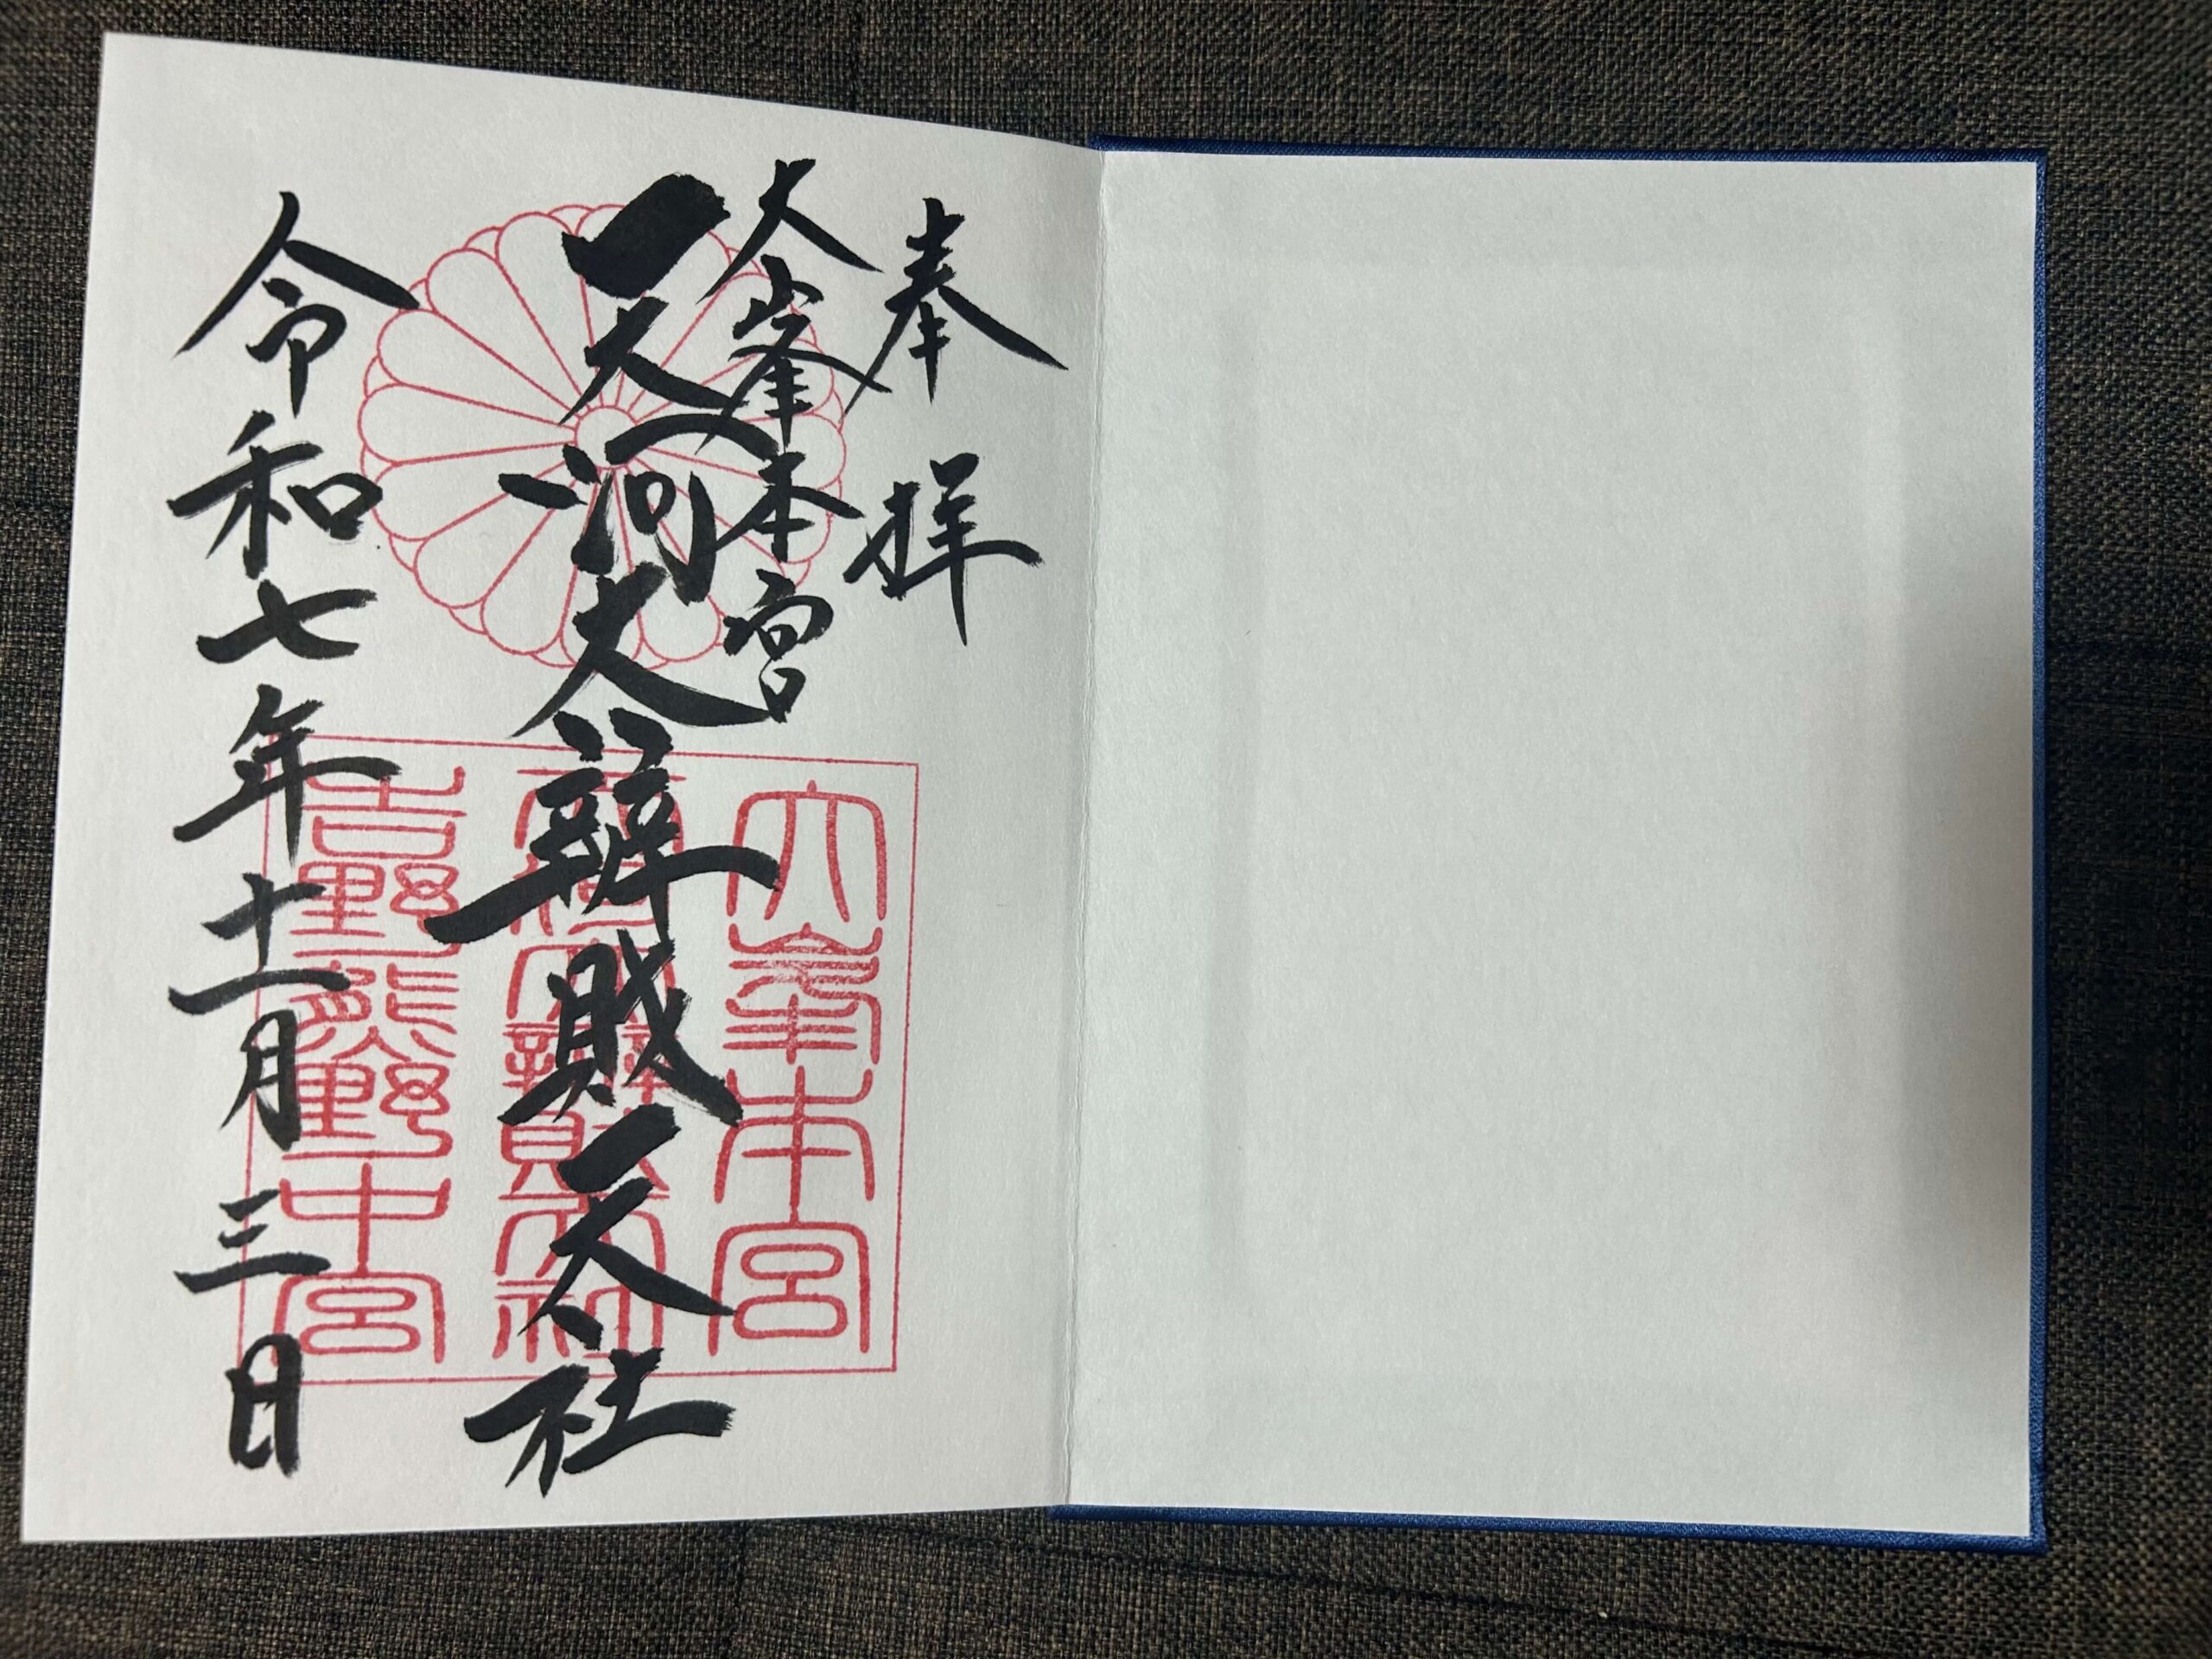 奉拝
大峯本宮
天河大辨財天社
令和七年十一月三日
大峯本宮
天河大辨財天社
吉野熊野中宮